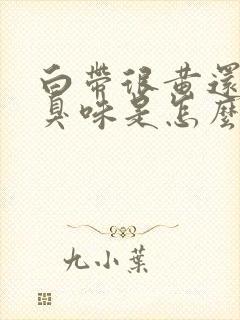 白帶很黃還
臭味是怎麼
九小葉